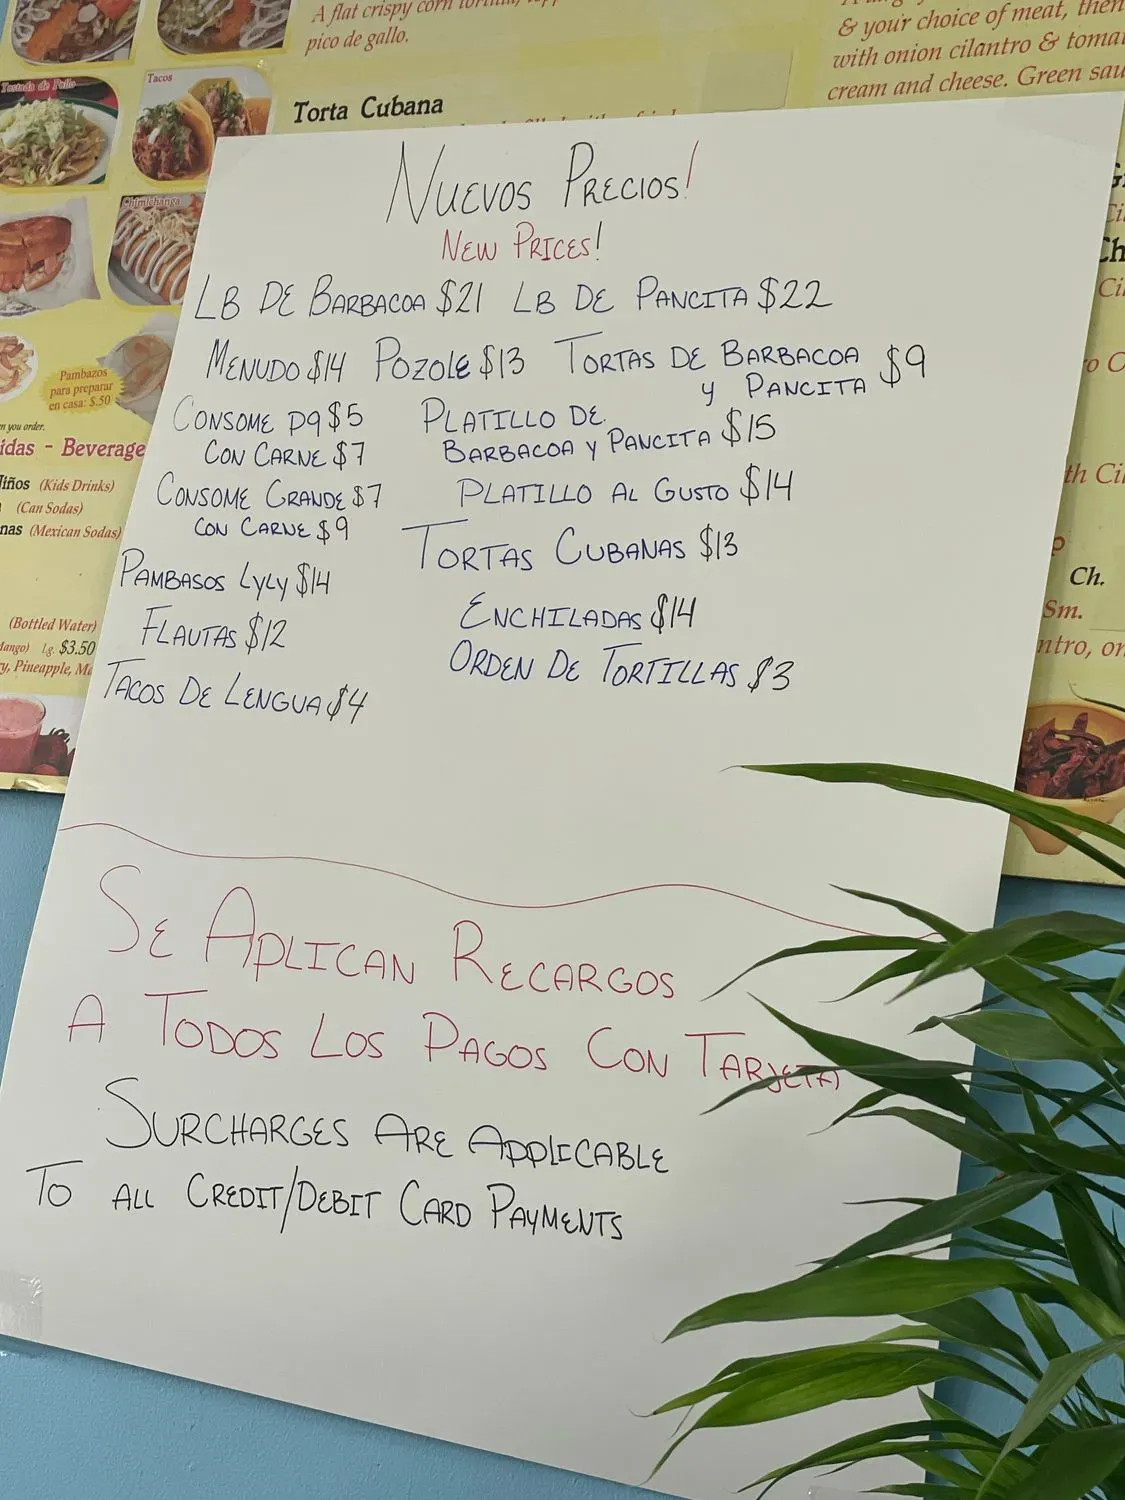 A flat crispy corn tortilla,
pico de gallo.
& your choice of meat, then
with onion cilantro & toma
cream and cheese. Green sau
Tostada de Pollo
Tacos
Torta Cubana
Chimichanga
Pambazos
para preparar
en casa: $.50
n you order.
idas - Beverage
iños (Kids Drinks)
(Can Sodas)
nas (Mexican Sodas)
(Bottled Water)
ango) Lg. $3.50
y, Pineapple, Ma
NUEVOS PRECIOS!
NEW PRICES!
LB DE BARBACOA $21 LB DE PANCITA $22
MENUDO $14 POZOLE $13 TORTAS DE BARBACOA
y PANCITA $9
CONSOME pq $5 PLATILLO DE
CON CARNE $7 BARBACOA y PANCITA $15
CONSOME GRANDE $7 PLATILLO AL GUSTO $14
CON CARNE $9
TORTAS CUBANAS $13
PAMBASOS LyLy $14
ENCHILADAS $14
FLAUTAS $12
ORDEN DE TORTILLAS $3
TACOS DE LENGUA $4
SE APLICAN RECARGOS
A TODOS LOS PAGOS CON TARJETA
SURCHARGES ARE APPLICABLE
TO ALL CREDIT/DEBIT CARD PAYMENTS
th Ci
Ch.
Sm.
ntro, on